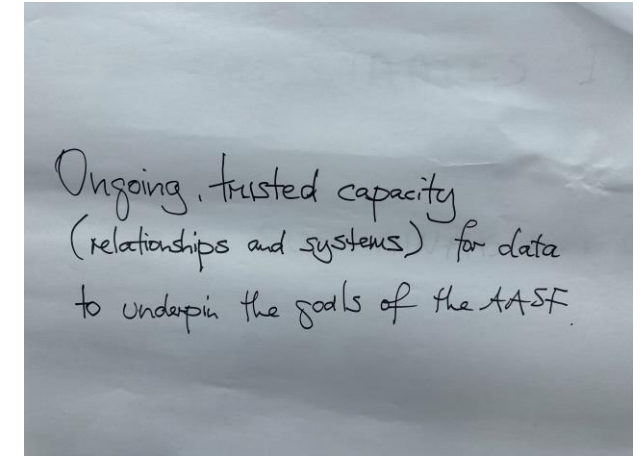 Ongoing, trusted capacity
(relationships and systems) for data
to underpin the goals of the AASF.